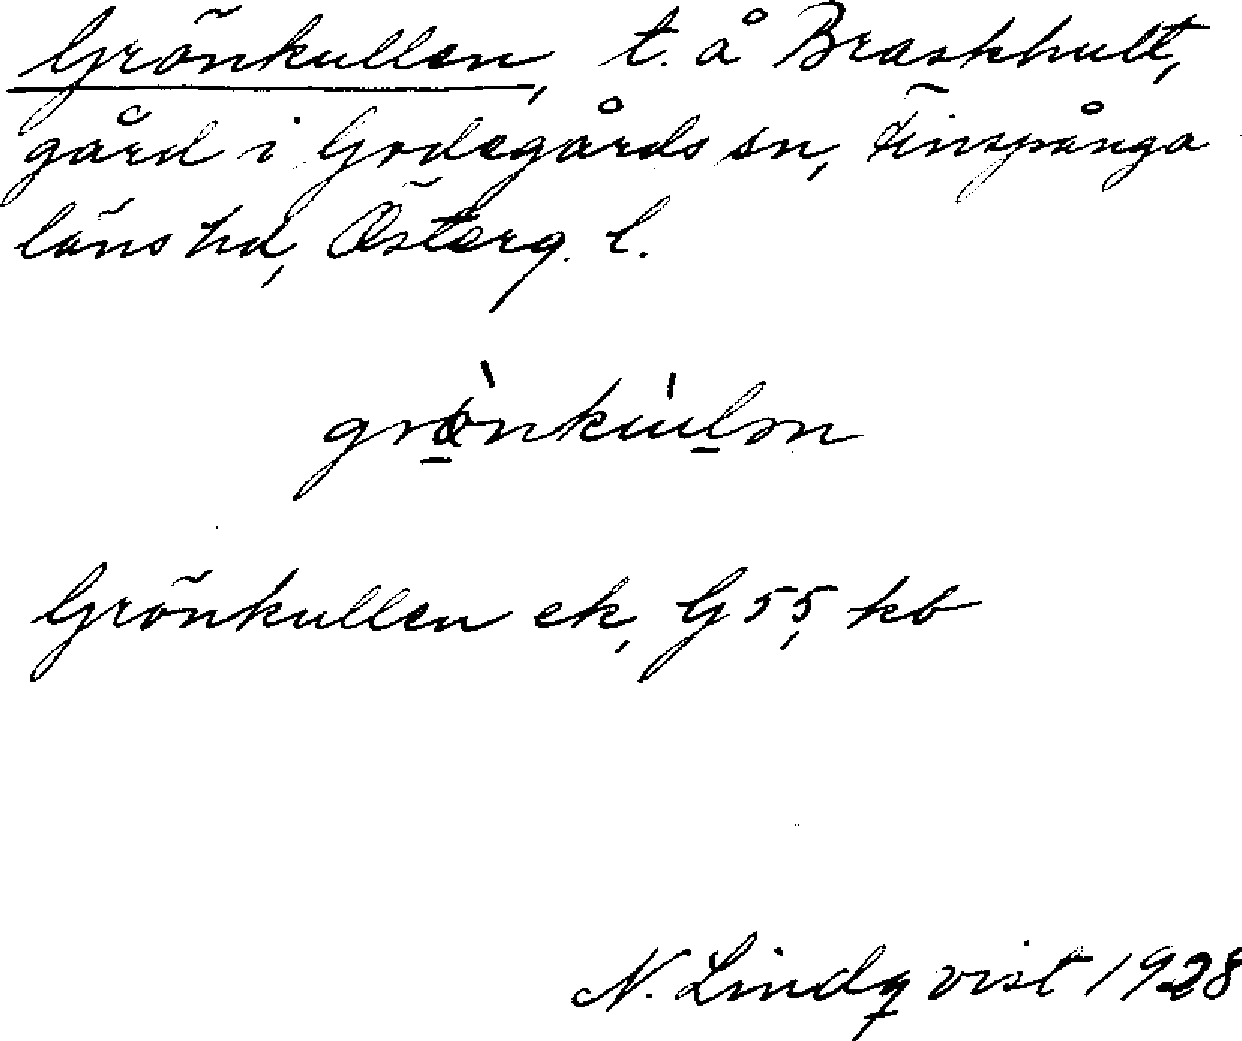 Grönkullen, t. å Braskhult,
gård i Godegårds sn, Finspånga
läns hd, Österg. l.
Grönkullen ek, G55, kb
N. Lindqvist 1928